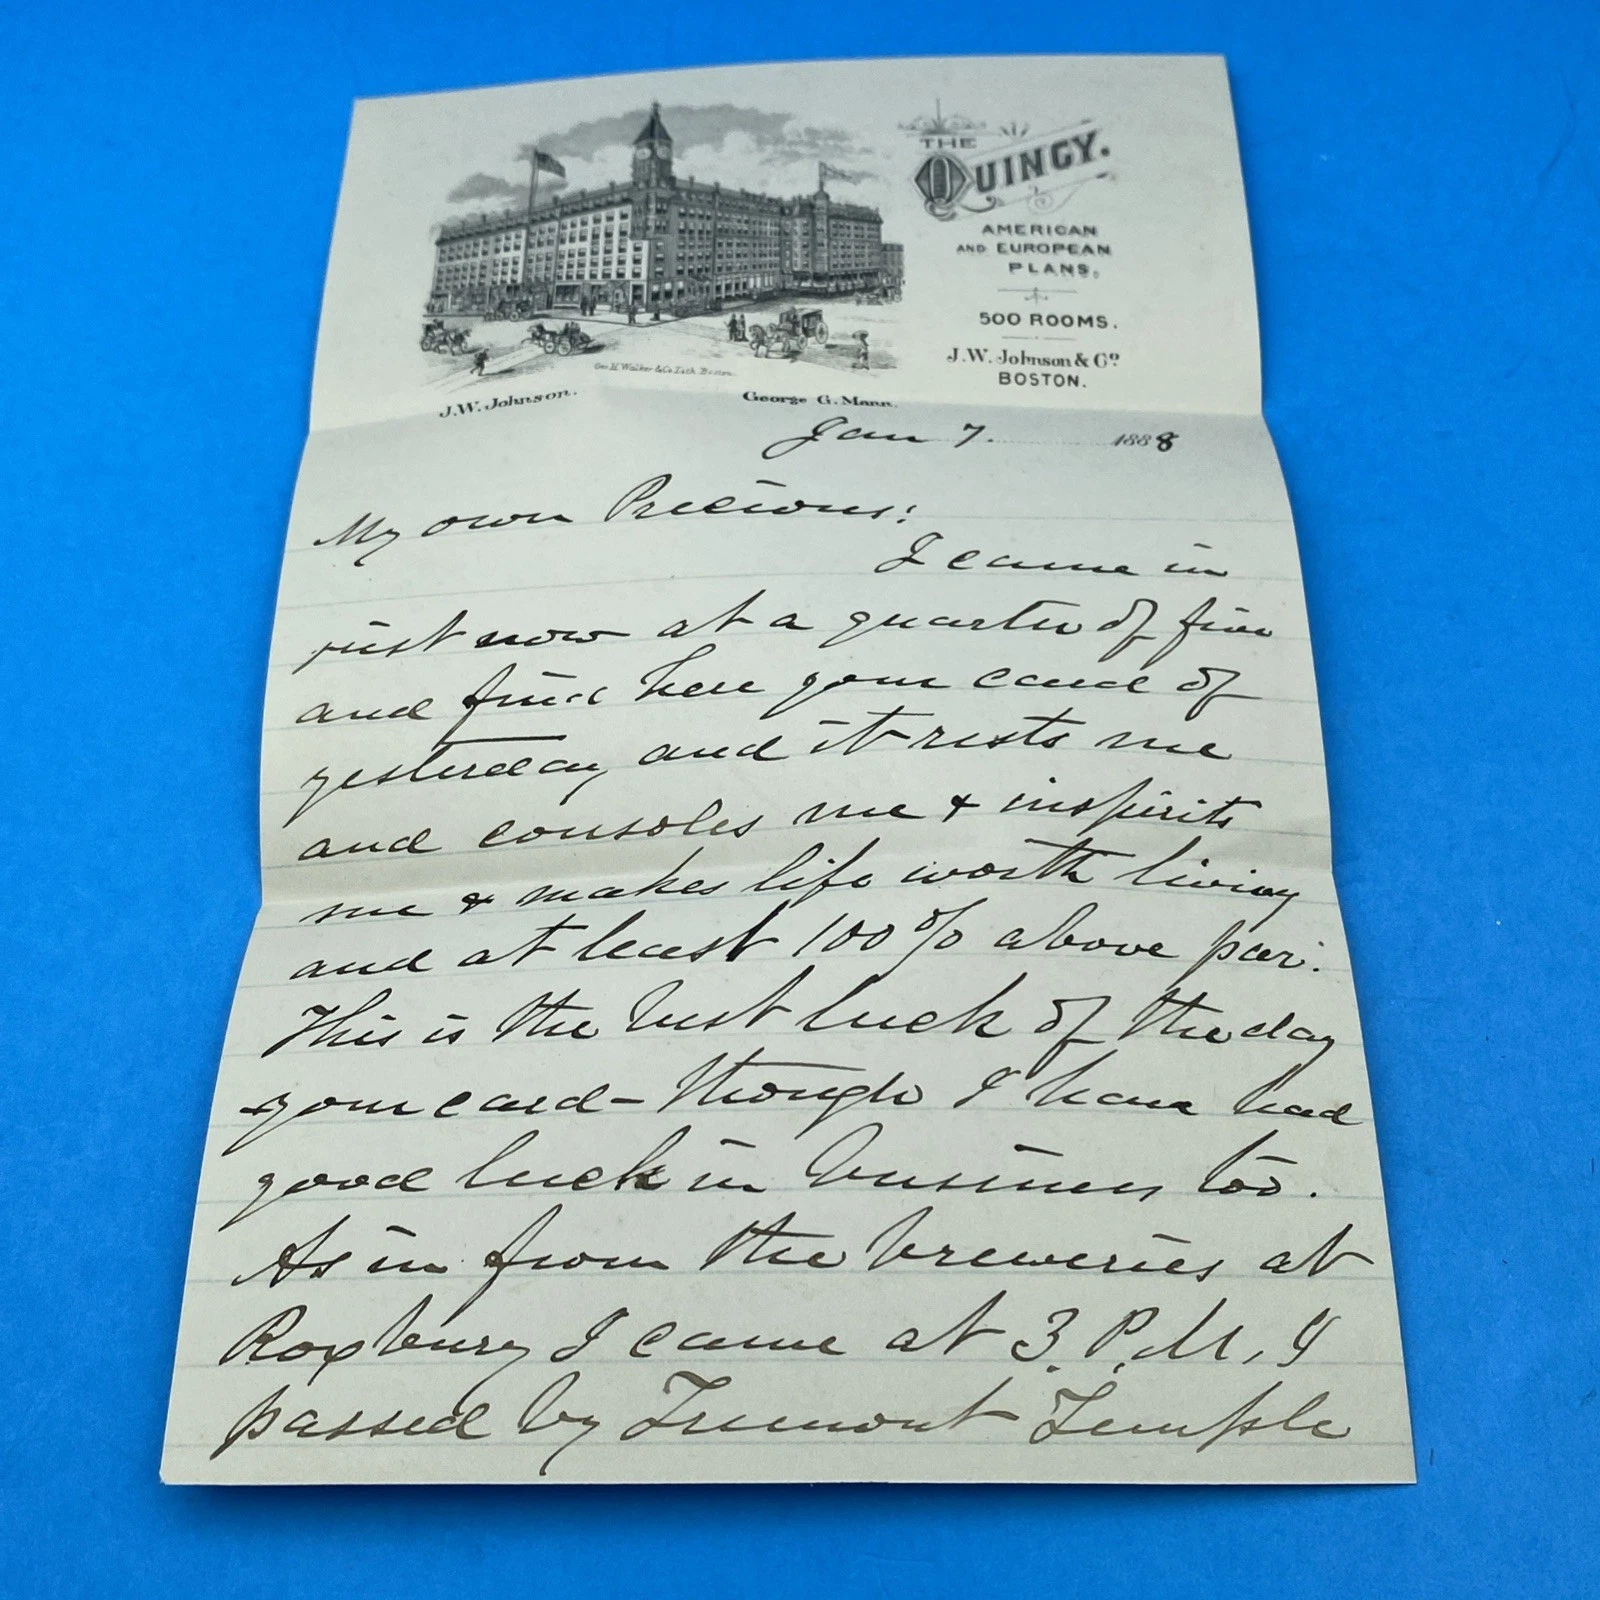 THE
QUINCY.
AMERICAN
AND EUROPEAN
PLANS.
500 ROOMS.
J.W. Johnson & Co.
BOSTON.
Geo. H. Walker & Co. Lith. Boston.
J.W. Johnson.
George G. Mann.
Jan 7. 1888
My own Precious:
I came in
just now at a quarter of five
and find here your card of
yesterday, and it rests me
and consoles me & inspirits
me & makes life worth living
and at least 100% above par.
This is the best luck of the day
-your card- though I have had
good luck in business too.
As in from the breweries at
Roxbury I came at 3. P.M, I
passed by Tremont Temple